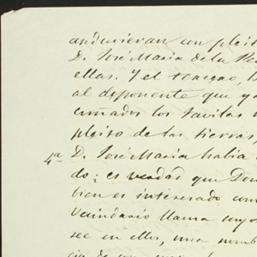 anduvieran con pleito
D. José Maria de la
ellas. Y el
al deponente que
cuñados los Tavitas
pleito de las tierras,
4ª D. José Maria habia
do: es verdad que Don
bien es interesado com
Vecindario llama
see en ellas, una nomb
cia de un